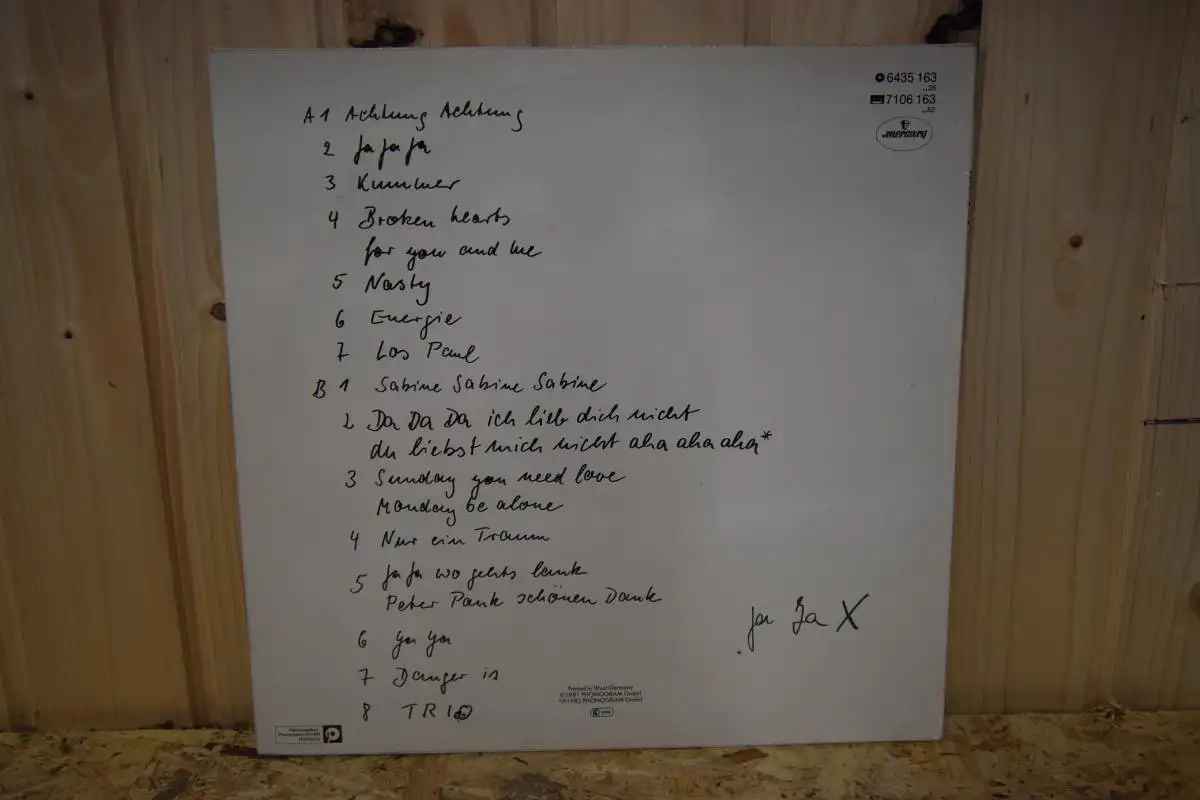 6435 163
...26
7106 163
...52
mercury
A 1 Achtung Achtung
2 Ja Ja Ja
3 Kummer
4 Broken hearts
for you and me
5 Nasty
6 Energie
7 Los Paul
B 1 Sabine Sabine Sabine
2 Da Da Da ich lieb dich nicht
du liebst mich nicht aha aha aha*
3 Sunday you need love
Monday be alone
4 Nur ein Traum
5 Ja Ja wo gehts lank
Peter Pank schönen Dank
6 Ya Ya
7 Danger is
8 TRIO
Ja Ja X
Printed in West Germany
©1981 PHONOGRAM GmbH
*℗1982 PHONOGRAM GmbH